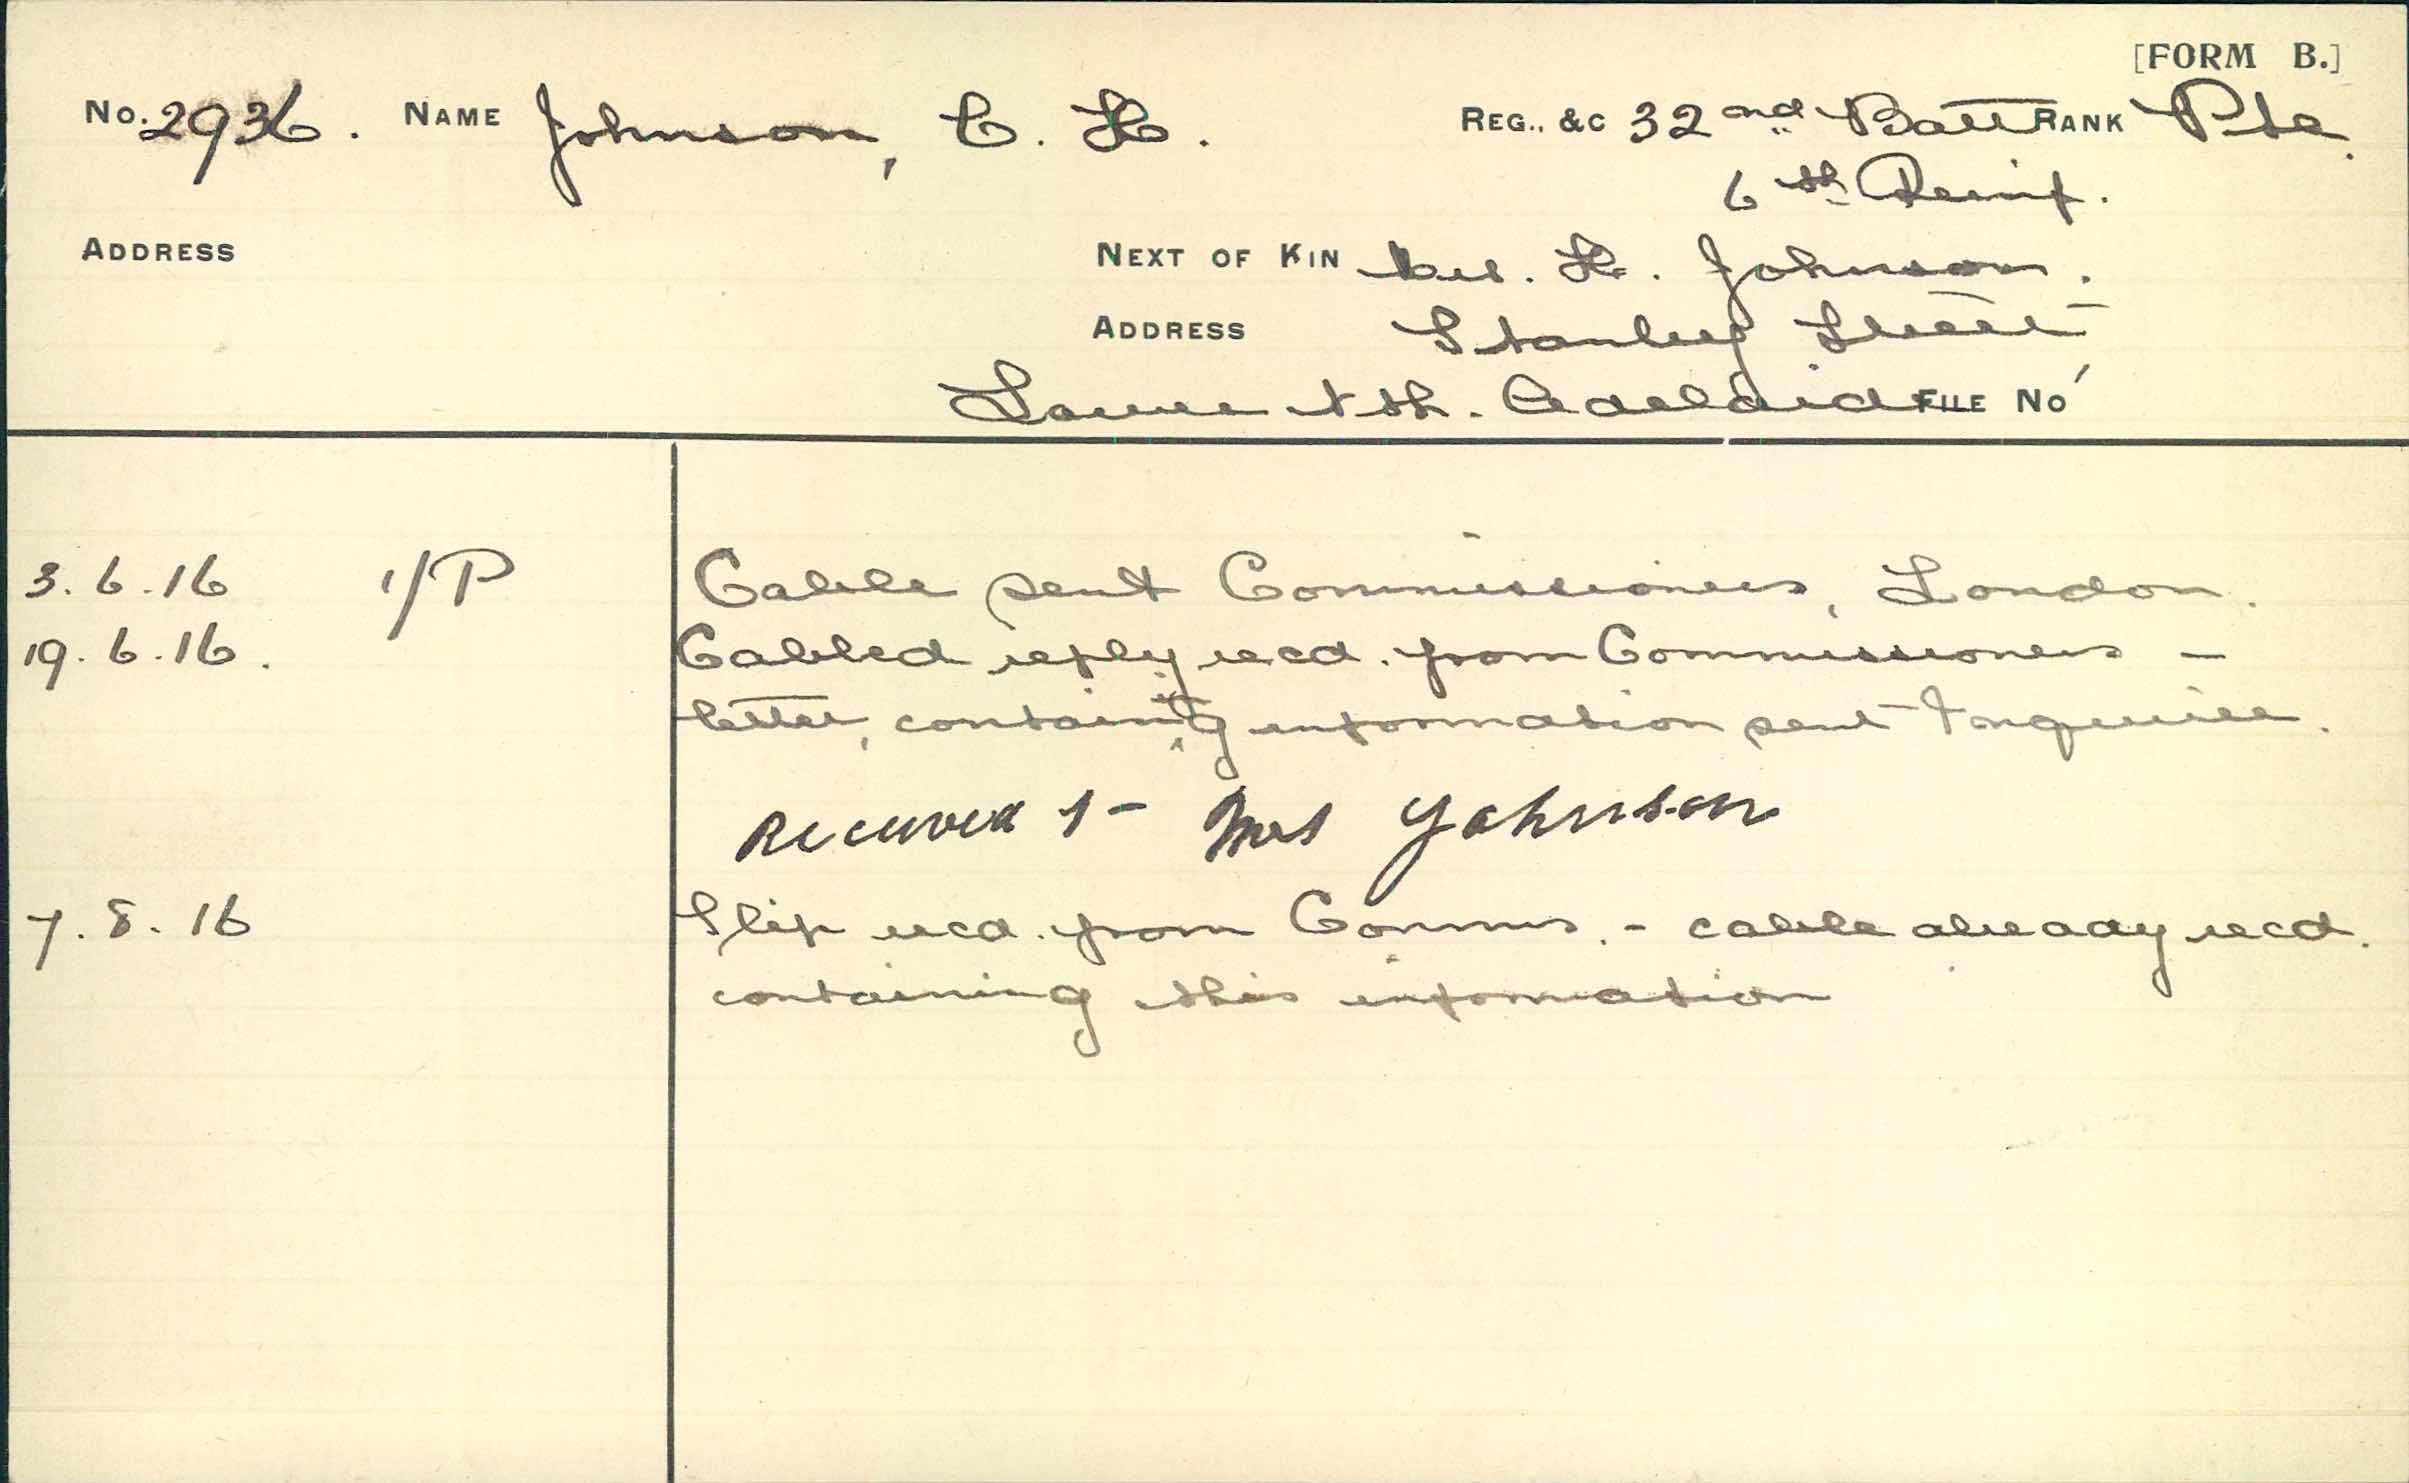 [FORM B.]
No. 2936. NAME Johnson, C. H. REG., &C 32nd Batt RANK Pte.
6th Reinf.
ADDRESS NEXT OF KIN Mrs. H. Johnson.
ADDRESS Stanley Street,
Lower Nth. Adelaide FILE No
3.6.16 1/P Cable sent Commissioners, London.
19.6.16. Cabled reply recd. from Commissioners -
letter, containing information sent Inquirer.
Received 1- Mrs Johnson
7.8.16 Slip recd. from Commrs. - cable already recd.
containing this information